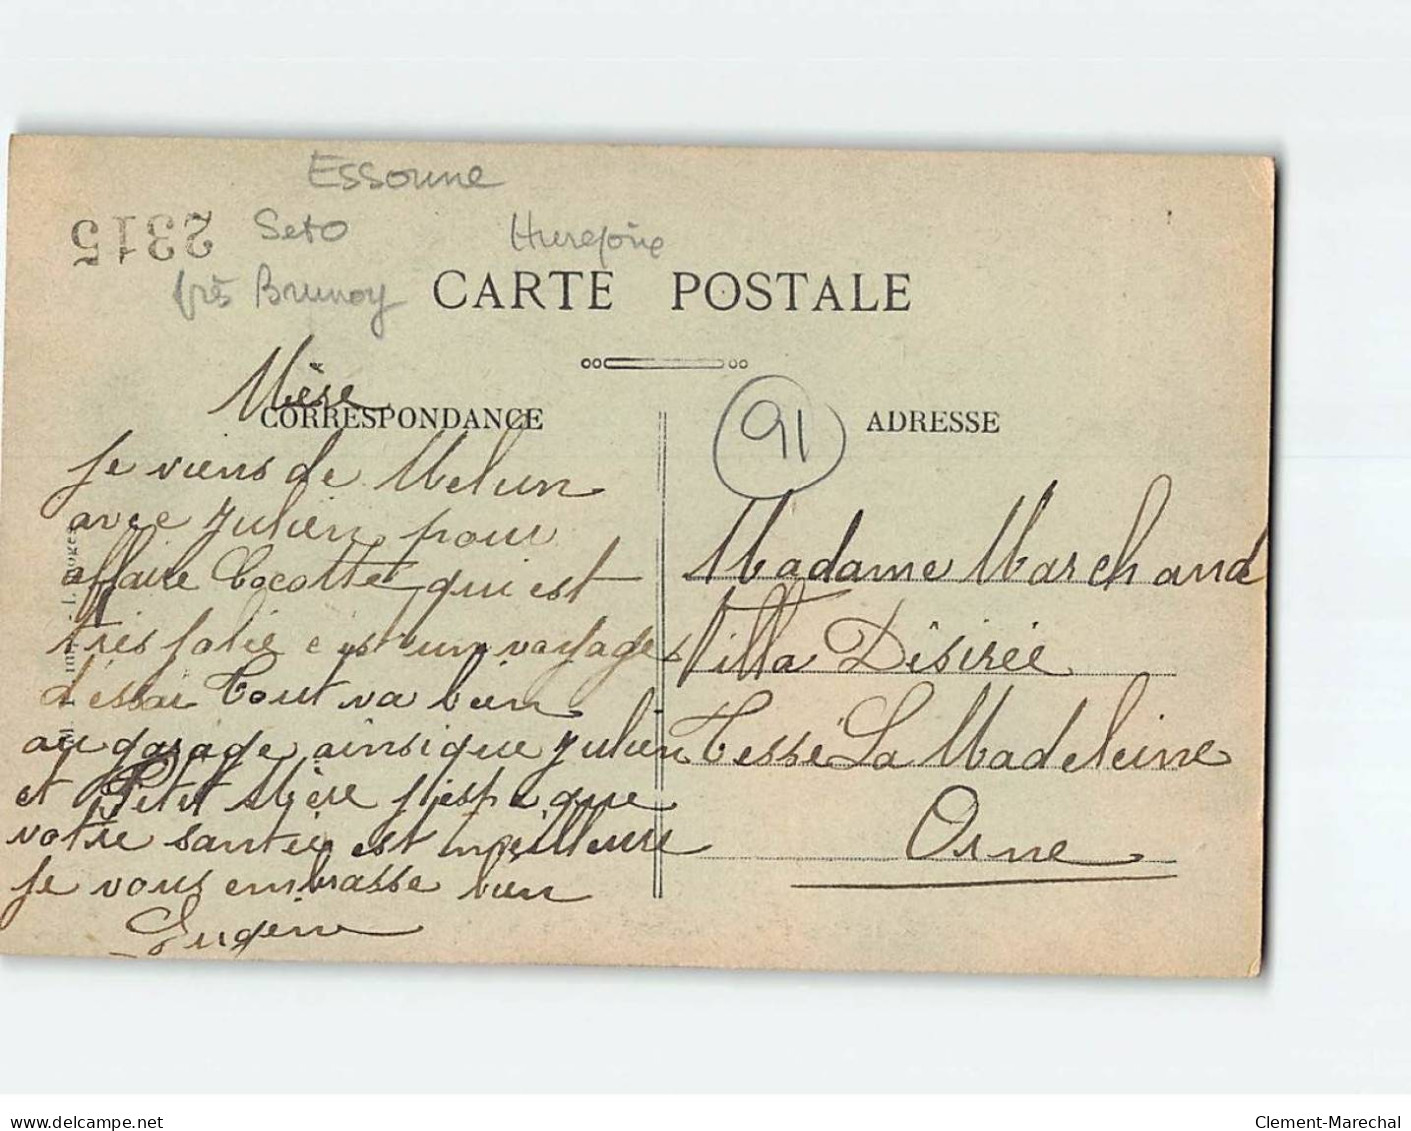 Essonne
2315
Seto
Hurepoix
près Brunoy
CARTE POSTALE
Mère
CORRESPONDANCE
Je viens de Melun
avec Julien pour
affaire Cocotte qui est
très jolie c est un voyage
d'essai Tout va bien
au garage ainsi que Julien
et Petit Mère j'espe que
votre santée est meilleure
Je vous embrasse bien
Eugène
91
ADRESSE
Madame Marchand
Villa Désirée
Tessé La Madeleine
Orne
www.delcampe.net
Clement-Marechal